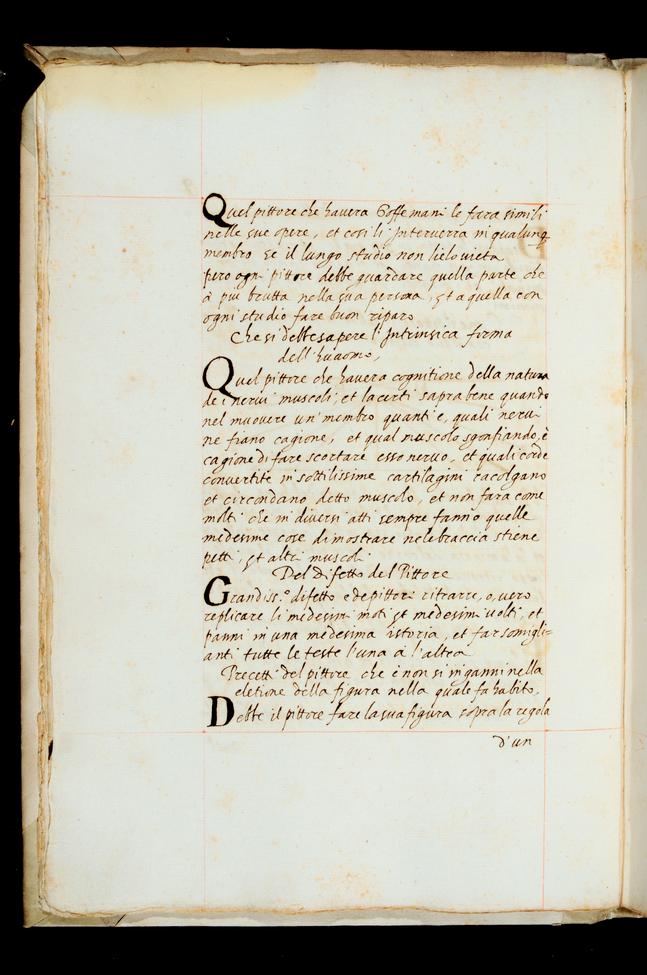 Quel pittore che havera Goffe mani le fara simili
nelle sue opere, et cosi li Interverra in qualunq
membro se il lungo studio non lielo vieta
pero ogni pittore debbe guardare quella parte che
à piu brutta nella sua persona, et a quella con
ogni studio fare buon riparo
Che si debbe sapere l'Intrinsica forma
dell'huaomo,
Quel pittore che havera cognitione della natura
de i nervi muscoli, et lacerti sapra bene quando
nel muovere un' membro quanti e, quali nervi
ne fiano cagione, et qual muscolo sgonfiando, è
cagione di fare scortare esso nervo, et quali corde
convertite in sottilissime cartilagini racolgano
et circondano detto muscolo, et non fara come
molti che in diversi atti sempre fanno quelle
medesime cose dimostrare ne le braccia stiene
petti, et altri muscoli
Del difetto del Pittore
Grandiss.º difetto e de pittori ritrarre, o, vero
replicare li medesimi moti et medesimi volti, et
panni in una medesima istoria, et far somigli=
anti tutte le teste l'una à l'altra
Precetti del pittore che è non si inganni nella
eletione della figura nella quale fa habito,
Debbe il pittore fare la sua figura sopra la regola
d'un